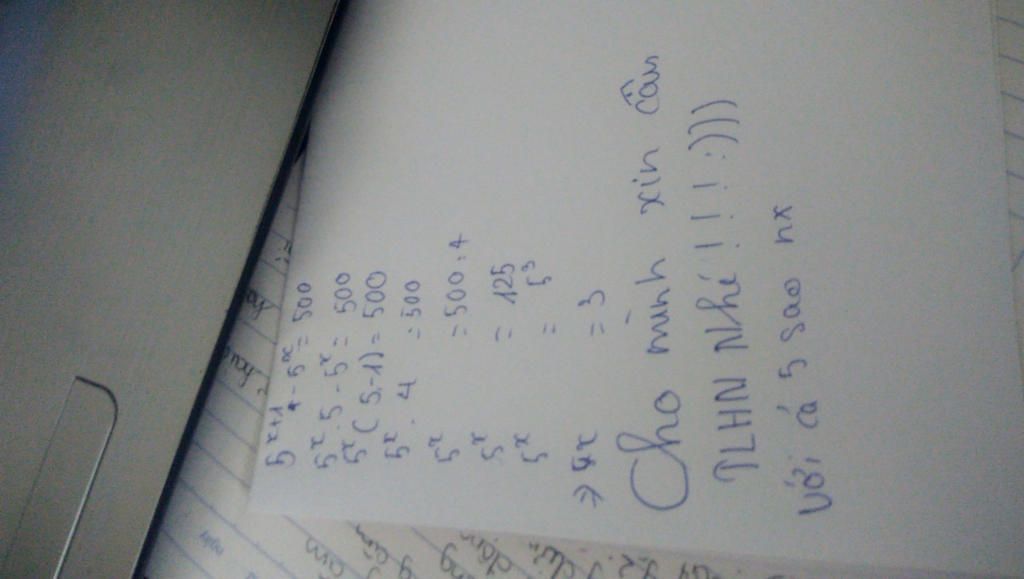 5^{x+1} - 5^x = 500
5^x . 5 - 5^x = 500
5^x ( 5 - 1 ) = 500
5^x . 4 = 500
5^x = 500 : 4
5^x = 125
5^x = 5^3
=> x = 3
Cho mình xin cần
TLHN Nhé ! ! ! :))))
với cả 5 sao nx
ngày